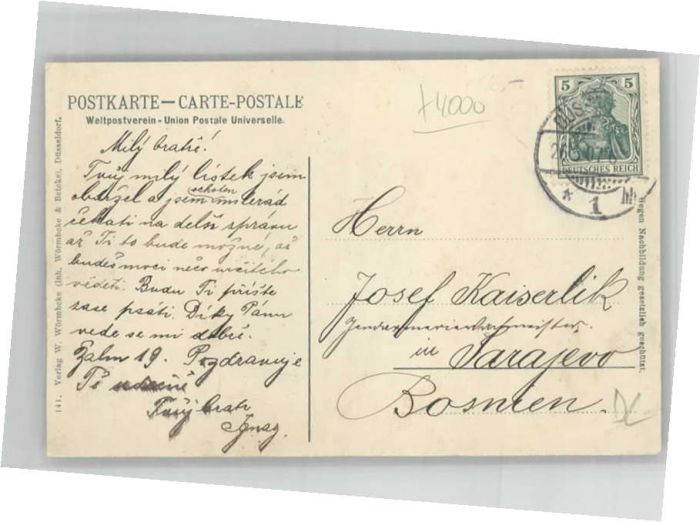 POSTKARTE — CARTE-POSTALE
Weltpostverein - Union Postale Universelle.
Milý bratře!
Tvůj milý lístek jsem
obdržel a jsem ochoten milerád
čekati na delší zprávu
až Ti to bude možné, až
budeš moci něco určitého
věděti. Budu Ti příště
zase psáti. Díky Pánu
vede se mi dobře.
Žalm 19. Pozdravuje
Tě
Tvůj bratr
Ignaz.
141. Verlag W. Wörmbcke (Inh. Wörmbcke & Behnke), Düsseldorf.
+4000
5 5
DEUTSCHES REICH
1
Herrn
Josef Kaiserlik
Gendarmeriewachtmeister
in Sarajevo
Bosnien.
Gegen Nachbildung gesetzlich geschützt.